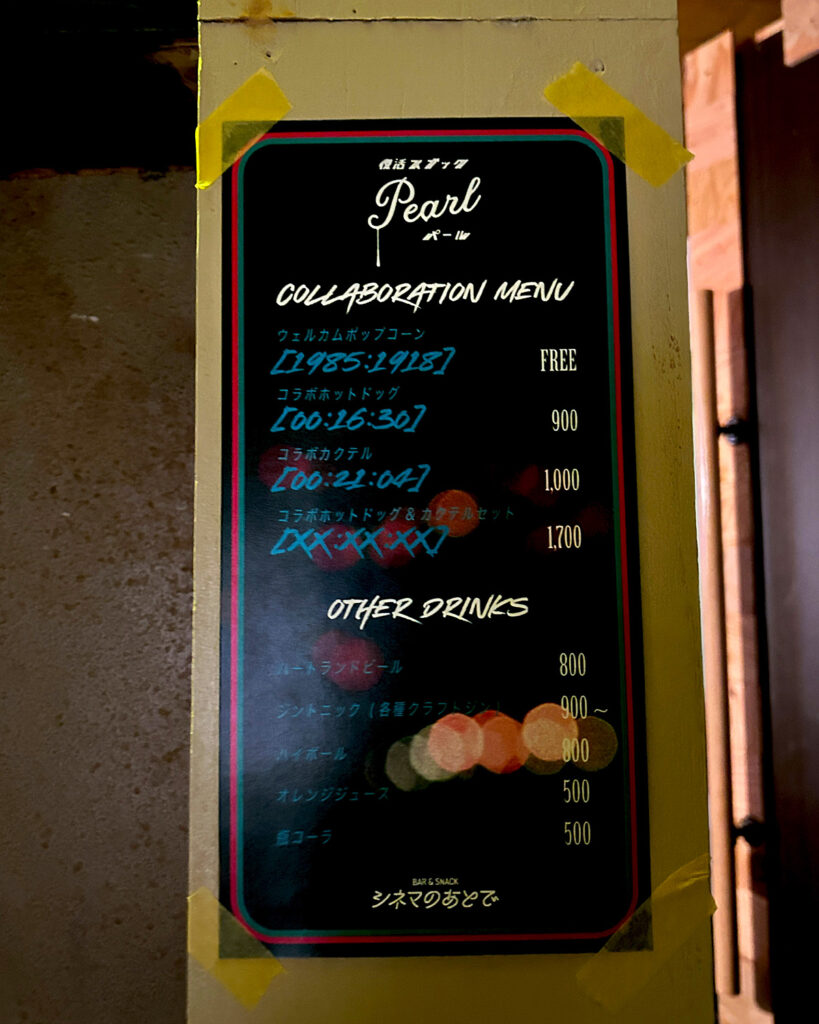 復活スナック
Pearl
パール
COLLABORATION MENU
ウェルカムポップコーン
[1985:1918] FREE
コラボホットドッグ
[00:16:30] 900
コラボカクテル
[00:21:04] 1,000
コラボホットドッグ & カクテルセット
[XX:XX:XX] 1,700
OTHER DRINKS
ハートランドビール 800
ジントニック (各種クラフトジン) 900～
ハイボール 800
オレンジジュース 500
瓶コーラ 500
BAR & SNACK
シネマのあとで